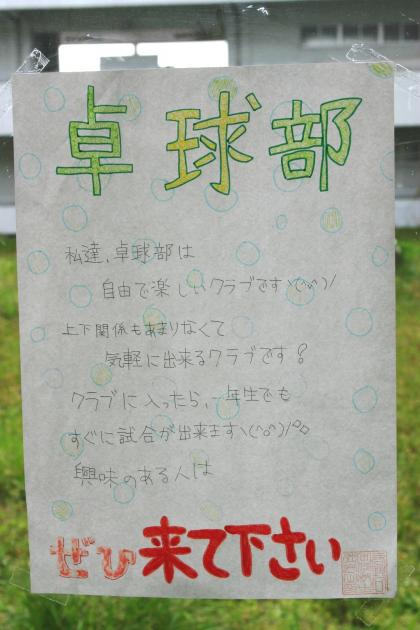 卓球部
私達、卓球部は
自由で楽しいクラブですヽ(^o^)ノ
上下関係もあまりなくて
気軽に出来るクラブです！
クラブに入ったら、一年生でも
すぐに試合が出来ますヽ(^o^)ノ
興味のある人は
ぜひ来て下さい